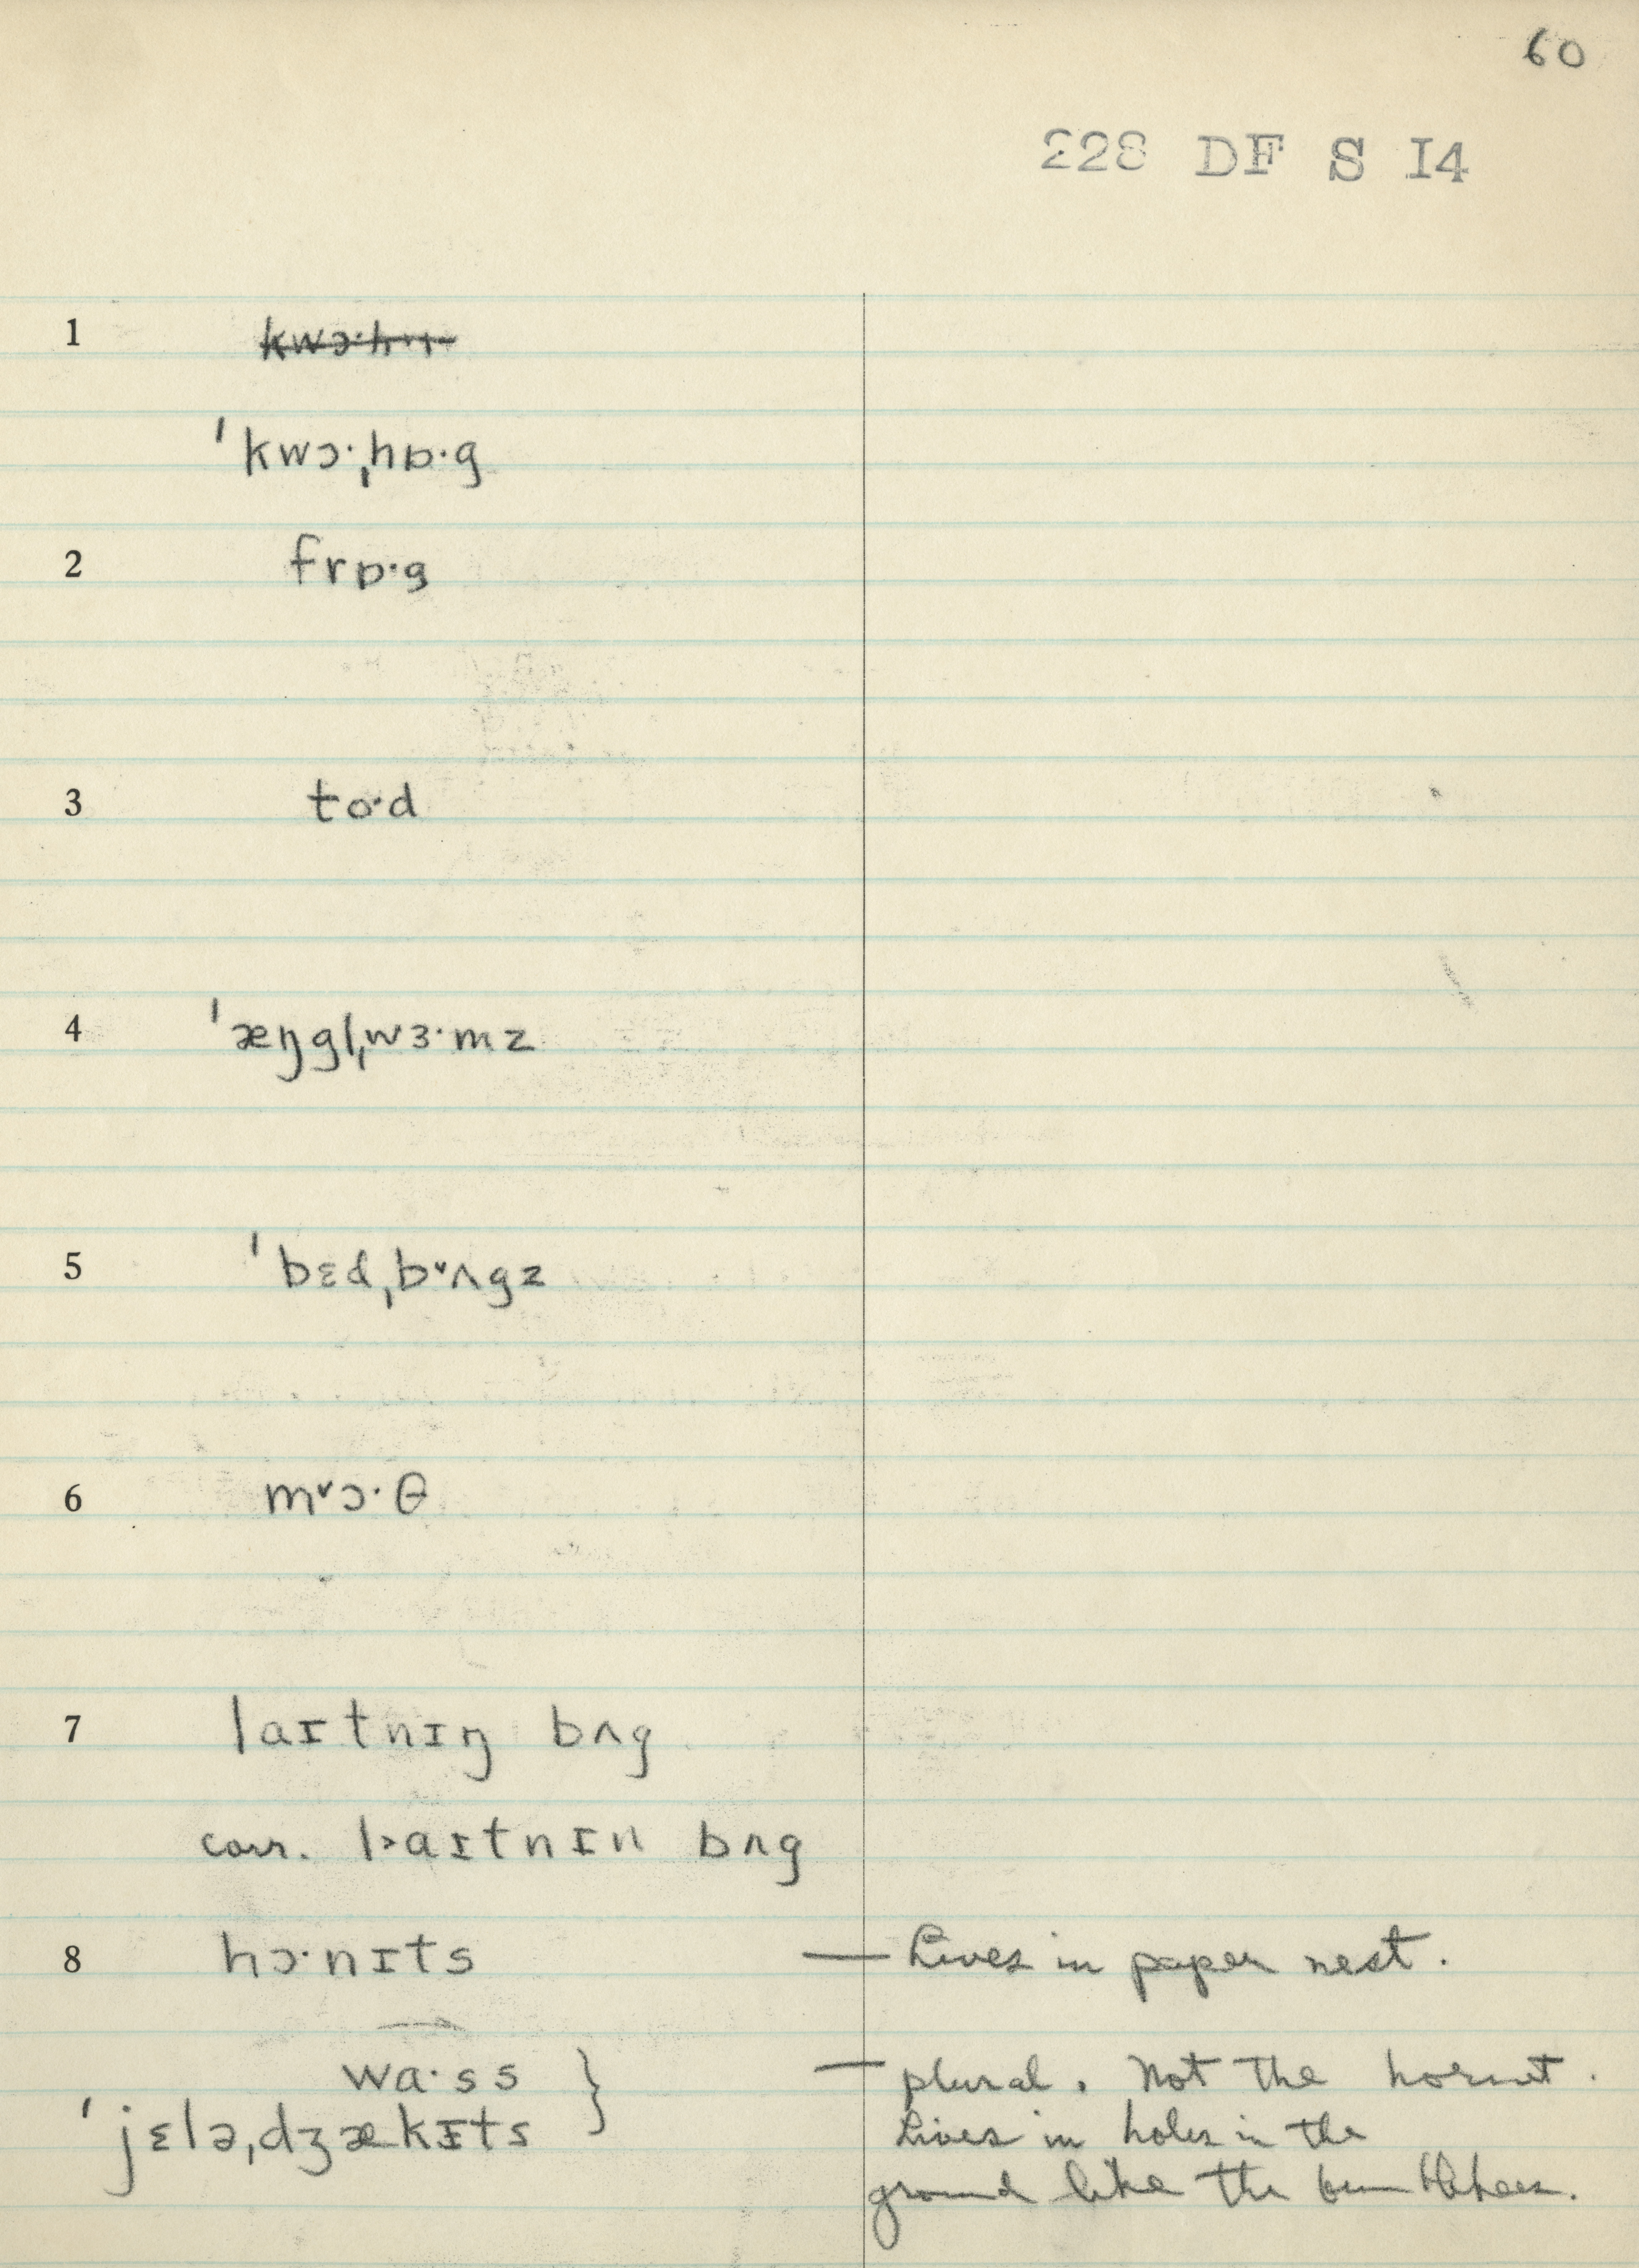 60
228 DF S I4
1
ˈkwɔ·ˌhɒ·g
2 frɒ·g
3 to·d
4 ˈæŋglˌwɜ·mz
5 ˈbɛdˌbᵛʌgz
6 mᵛɔ·θ
7 laɪtnɪŋ bʌg
corr. l˃aɪtnɪn bʌg
8 hɔ·nɪts — Lives in paper nest.
wa·ss } — plural. Not the hornet.
ˈjɛləˌdʒækɪts Lives in holes in the
ground like the bumblebees.